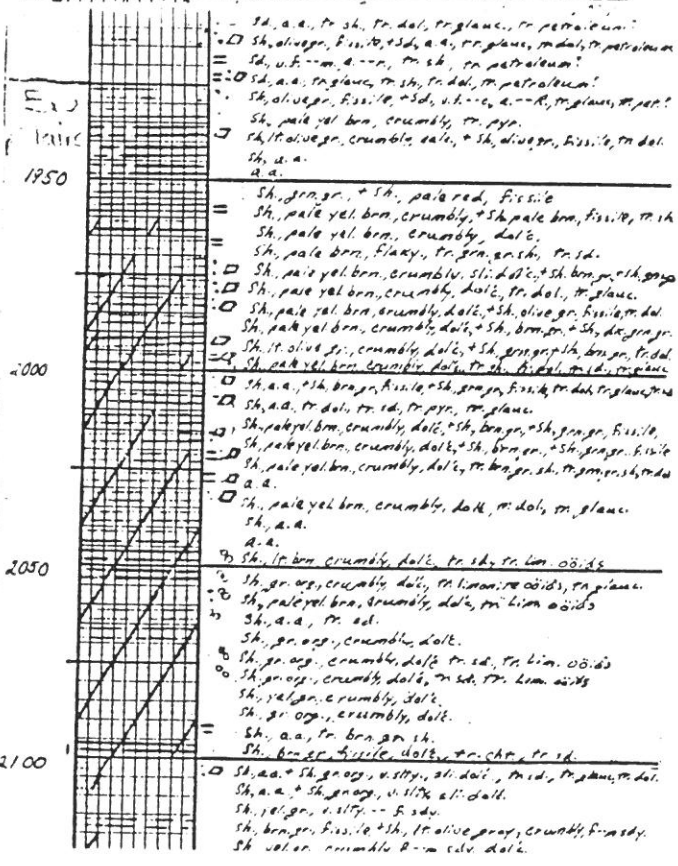 Sd., a.a., tr. sh., tr. dol., tr. glauc., tr. petroleum?
Sh., olive gr., fissile, + Sd., a.a., tr. glauc., m. dol., tr. petroleum
Sd., v.f.--m, a.--r., tr. sh., tr. petroleum?
Sd., a.a., tr. glauc., tr. sh., tr. dol., tr. petroleum?
Sh., olive gr., fissile, + Sd., v.f.--c, a.--R., tr. glauc., tr. pet.?
Sh., pale yel. brn., crumbly, tr. pyr.
Sh., lt. olive gr., crumbly, calc., + Sh., olive gr., fissile, tr. dol.
Sh., a.a.
1950
a.a.
Sh., grn. gr., + Sh., pale red, fissile
Sh., pale yel. brn., crumbly, + Sh., pale brn., fissile, tr. sh
Sh., pale yel. brn., crumbly, dol'c.
Sh., pale brn., flaky, tr. grn. gr. sh., tr. sd.
Sh., pale yel. brn., crumbly, sli. dol'c, + Sh. brn. gr. + sh.
Sh., pale yel. brn., crumbly, dol'c, tr. dol., tr. glauc.
Sh., pale yel. brn., crumbly, dol'c, + Sh., olive gr., fissile, tr. dol.
Sh., pale yel. brn., crumbly, dol'c, + Sh., brn. gr., + Sh., dk. grn. gr.
Sh., lt. olive gr., crumbly, dol'c, + Sh., grn. gr. + Sh., brn. gr., tr. dol.
2000
Sh., pale yel. brn., crumbly, dol'c, tr. sh., tr. sd., tr. glauc
Sh., a.a., + Sh., brn. gr., fissile, + Sh., grn. gr., fissile, tr. dol., tr. glauc.
Sh., a.a., tr. dol., tr. sd., tr. pyr., tr. glauc.
Sh., pale yel. brn., crumbly, dol'c, + Sh., brn. gr., + Sh., grn. gr., fissile,
Sh., pale yel. brn., crumbly, dol'c, + Sh., brn. gr., + Sh., grn. gr., fissile
Sh., pale yel. brn., crumbly, dol'c, tr. brn. gr. sh., tr. grn. gr. sh., tr. dol
a.a.
Sh., pale yel. brn., crumbly, dol'c, tr. dol., tr. glauc.
Sh., a.a.
a.a.
2050
Sh., lt. brn., crumbly, dol'c, tr. sd., tr. lim. oöids
Sh., gr. org., crumbly, dol'c, tr. limonite oöids, tr. glauc.
Sh., pale yel. brn., crumbly, dol'c, tr. lim. oöids
Sh., a.a., tr. sd.
Sh., gr. org., crumbly, dol'c.
Sh., gr. org., crumbly, dol'c, tr. sd., tr. lim. oöids
Sh., gr. org., crumbly, dol'c, tr. sd., tr. lim. oöids
Sh., yel. gr., crumbly, dol'c.
Sh., gr. org., crumbly, dol'c.
Sh., a.a., tr. brn. gr. sh.
2100
Sh., brn. gr., fissile, dol'c, tr. cht., tr. sd.
Sh., a.a. + Sh. gr. org., v. slty., sli. dol'c., tr. sd., tr. glauc, tr. dol.
Sh., a.a. + Sh. gr. org., v. slty., sli. dol'c.
Sh., yel. gr., v. slty. -- f. sdy.
Sh., brn. gr., fissile, + Sh., lt. olive gray, crumbly, f--m sdy.
Sh., yel. gr., crumbly, f--m sdy., dol'c.